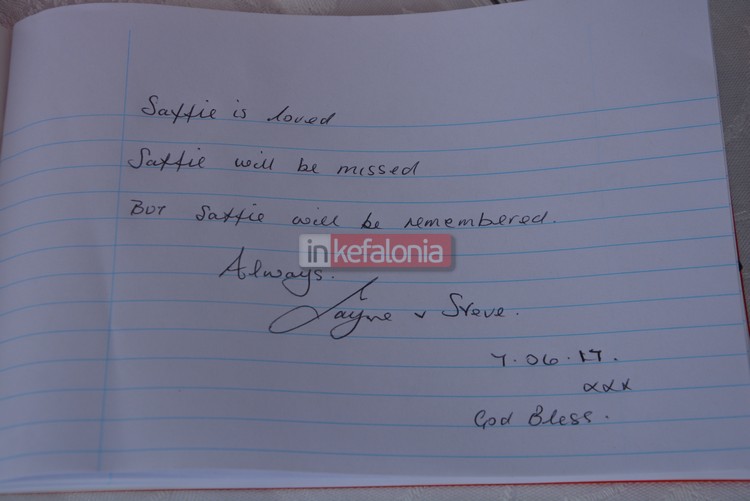 Saffie is loved
Saffie will be missed
BUT Saffie will be remembered.
inkefalonia
Always.
Jayne & Steve.
7.06.17.
xxx
God Bless.